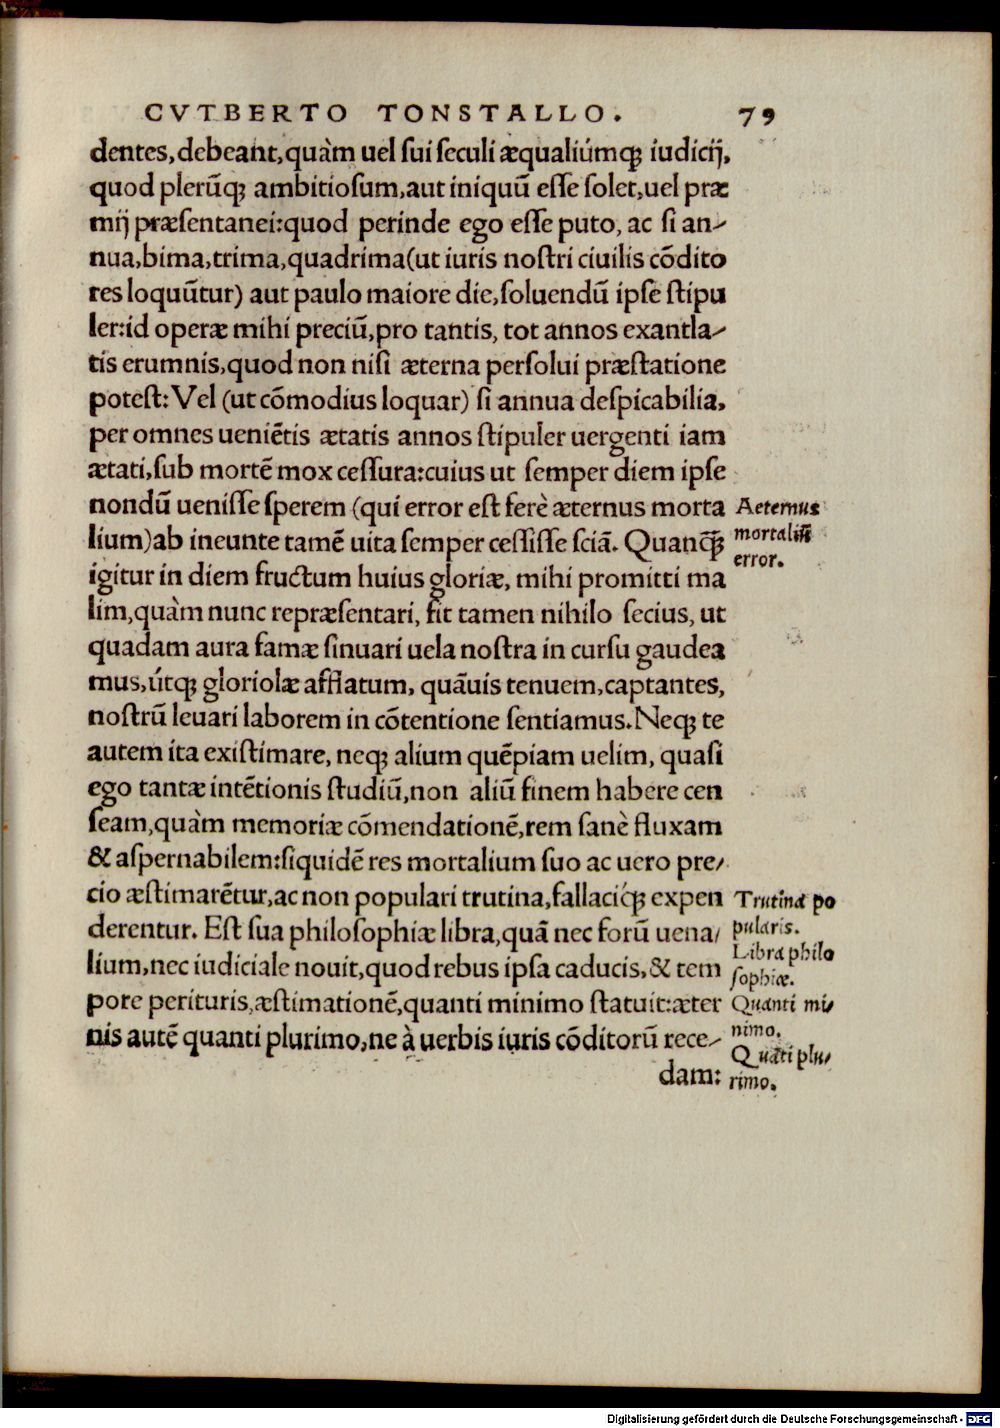 CVTBERTO TONSTALLO. 79
dentes, debeant, quàm uel sui seculi æqualiúmq; iudicij,
quod plerũq; ambitiosum, aut iniquũ esse solet, uel præ
mij præsentanei: quod perinde ego esse puto, ac si an-
nua, bima, trima, quadrima (ut iuris nostri ciuilis cõdito
res loquũtur) aut paulo maiore die, soluendũ ipse stipu
ler: id operæ mihi preciũ, pro tantis, tot annos exantla-
tis erumnis, quod non nisi æterna persolui præstatione
potest: Vel (ut cõmodius loquar) si annua despicabilia,
per omnes ueniẽtis ætatis annos stipuler uergenti iam
ætati, sub mortẽ mox cessura: cuius ut semper diem ipse
nondũ uenisse sperem (qui error est ferè æternus morta
lium) ab ineunte tamẽ uita semper cessisse sciã. Quancq̃;
igitur in diem fructum huius gloriæ, mihi promitti ma
lim, quàm nunc repræsentari, fit tamen nihilo secius, ut
quadam aura famæ sinuari uela nostra in cursu gaudea
mus, útq; gloriolæ afflatum, quãuis tenuem, captantes,
nostrũ leuari laborem in cõtentione sentiamus. Neq; te
autem ita existimare, neq; alium quẽpiam uelim, quasi
ego tantæ intẽtionis studiũ, non aliũ finem habere cen
seam, quàm memoriæ cõmendationẽ, rem sanè fluxam
& aspernabilem: siquidẽ res mortalium suo ac uero pre-
cio æstimarẽtur, ac non populari trutina, fallaciq́; expen
derentur. Est sua philosophiæ libra, quã nec forũ uena-
lium, nec iudiciale nouit, quod rebus ipsa caducis, & tem
pore perituris, æstimationẽ, quanti minimo statuit: æter
nis autẽ quanti plurimo, ne à uerbis iuris cõditorũ rece-
dam:
Aeternus
mortaliũ
error.
Trutina po
pularis.
Libra philo
sophiæ.
Quanti mi-
nimo.
Quãti plu-
rimo.
Digitalisierung gefördert durch die Deutsche Forschungsgemeinschaft - DFG